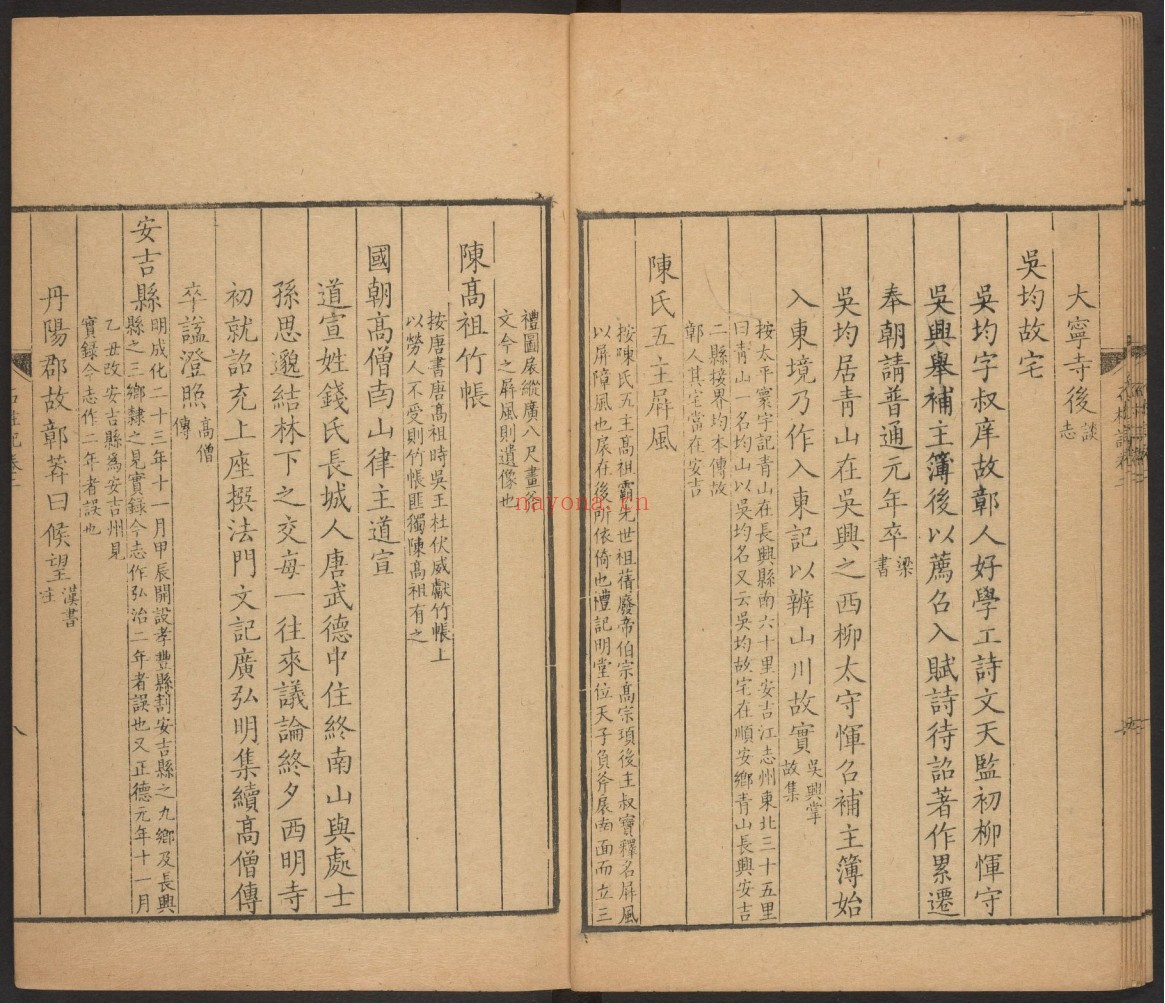 大寧寺後
談
志
吳均故宅
吳均字叔庠故鄣人好學工詩文天監初柳惲守
吳興舉補主簿後以薦召入賦詩待詔著作累遷
奉朝請普通元年卒
梁
書
吳均居青山在吳興之西柳太守惲召補主簿始
入東境乃作入東記以辨山川故實
吳興掌
故集
按太平寰宇記青山在長興縣南六十里安吉江志州東北三十五里
曰青山一名均山以吳均名又云吳均故宅在順安鄉青山長興安吉
二縣接界均本傳故
鄣人其宅當在安吉
陳氏五主屛風
按陳氏五主高祖霸先世祖蒨廢帝伯宗高宗頊後主叔寶釋名屛風
以屛障風也扆在後所依倚也禮記明堂位天子負斧扆南面而立三
禮圖扆縱廣八尺畫斧
文今之屛風則遺像也
陳高祖竹帳
按唐書唐高祖時吳王杜伏威獻竹帳上
以勞人不受則竹帳匪獨陳高祖有之
國朝高僧南山律主道宣
道宣姓錢氏長城人唐武德中住終南山與處士
孫思邈結林下之交每一往來議論終夕西明寺
初就詔充上座撰法門文記廣弘明集續高僧傳
卒諡澄照
高僧
傳
安吉縣
明成化二十三年十一月甲辰開設孝豐縣割安吉縣之九鄉及長興
縣之三鄉隸之見實錄今志作弘治二年者誤也又正德元年十一月
乙丑改安吉縣為安吉州見
實錄今志作二年者誤也
丹陽郡故鄣莽曰候望
漢書
注
八
nayona.cn